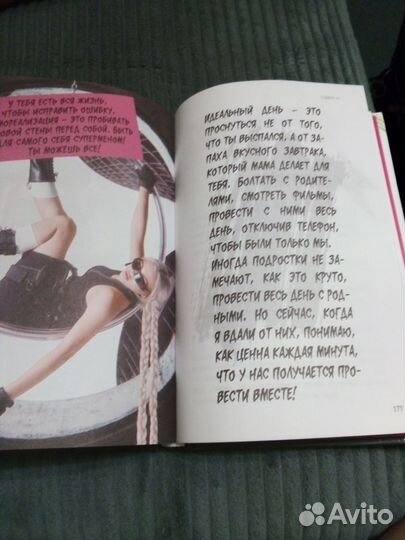 У ТЕБЯ ЕСТЬ ВСЯ ЖИЗНЬ,
ЧТОБЫ ИСПРАВИТЬ ОШИБКУ,
МОРЕАЛИЗАЦИЯ - ЭТО ПРОБИВАТЬ
ОВОЙ СТЕНЫ ПЕРЕД СОБОЙ. БЫТЬ
ДЛЯ САМОГО СЕБЯ СУПЕРМЕНОМ!
ТЫ МОЖЕШЬ ВСЕ!
ИДЕАЛЬНЫЙ ДЕНЬ – ЭТО
ПРОСНУТЬСЯ НЕ ОТ ТОГО,
ЧТО ТЫ ВЫСПАЛСЯ, А ОТ ЗА-
ПАХА ВКУСНОГО ЗАВТРАКА,
КОТОРЫЙ МАМА ДЕЛАЕТ ДЛЯ
ТЕБЯ. БОЛТАТЬ С РОДИТЕ-
ЛЯМИ, СМОТРЕТЬ ФИЛЬМЫ,
ПРОВЕСТИ С НИМИ ВЕСЬ
ДЕНЬ, ОТКЛЮЧИВ ТЕЛЕФОН,
ЧТОБЫ БЫЛИ ТОЛЬКО МЫ.
ИНОГДА ПОДРОСТКИ НЕ ЗА-
МЕЧАЮТ, КАК ЭТО КРУТО,
ПРОВЕСТИ ВЕСЬ ДЕНЬ С РОД-
НЫМИ. НО СЕЙЧАС, КОГДА
Я ВДАЛИ ОТ НИХ, ПОНИМАЮ,
КАК ЦЕННА КАЖДАЯ МИНУТА,
ЧТО У НАС ПОЛУЧАЕТСЯ ПРО-
ВЕСТИ ВМЕСТЕ!
177
Avito